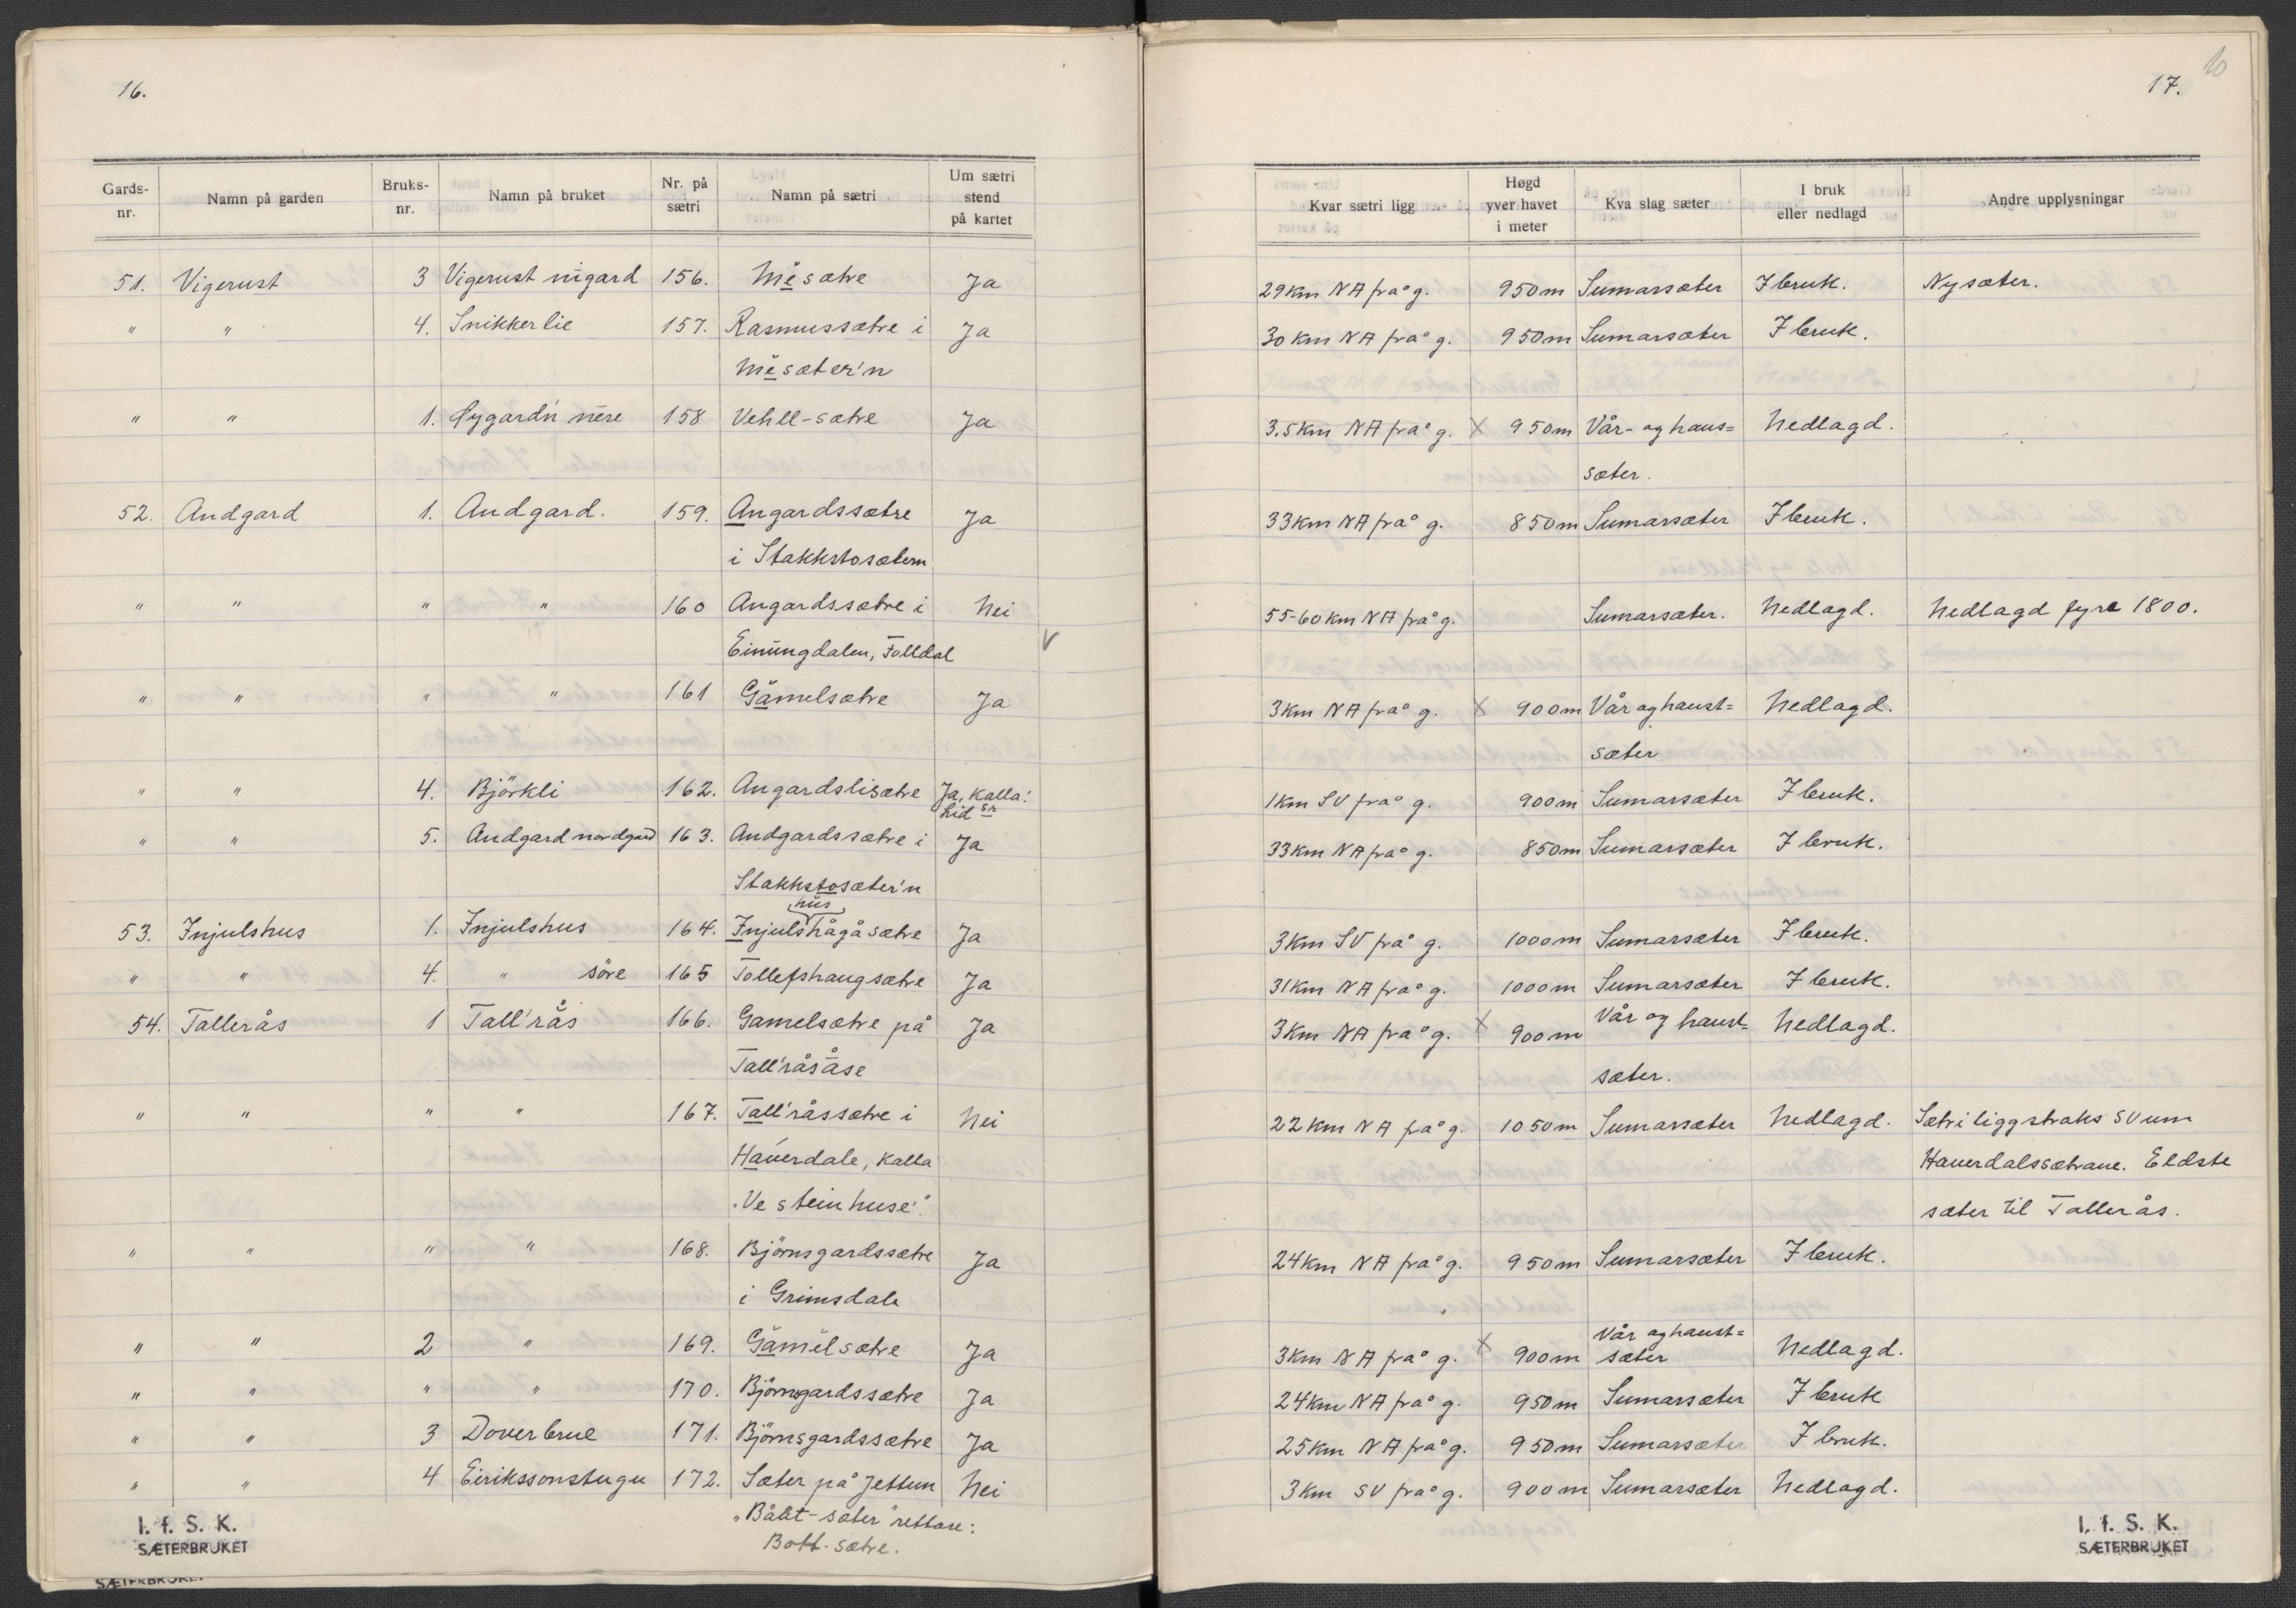 16.
Gards-nr. Namn på garden Bruks-nr. Namn på bruket Nr. på sætri Namn på sætri Um sætri stend på kartet
51. Vigerust 3 Vigerust nigard 156. Mesætre Ja
" " 4. Snikkerlie 157. Rasmussætre i Ja
Mesæter'n
" " 1. Øygard'n nere 158 Vehll-sætre Ja
52. Andgard 1. Andgard. 159. Angardssætre Ja
i Stakkstosætern
" " " " 160 Angardssætre i Nei
Einungdalen, Folldal V
" " " " 161 Gamelsætre Ja
" " 4. Björkli 162. Angardslisætre Ja, Kalla:
Lid sr
" " 5. Andgard nordgard 163. Andgardssætre i Ja
Stakkstosæter'n
hus
53. Injulshus 1. Injulshus 164. Injulshågåsætre Ja
" " 4. " söre 165 Tollefshaugsætre Ja
54. Tallerås 1 Tall'rås 166. Gamelsætre på Ja
Tall'råsåse
" " " " 167. Tall'råssætre i Nei
Haverdale, kalla
"Ve steinhuse".
" " " " 168. Björnsgardssætre Ja
i Grimsdale
" " 2 " 169. Gamelsætre Ja
" " " " 170. Björnsgardssætre Ja
" " 3 Doverbrue 171. Björnsgardssætre Ja
" " 4 Eirikssonstugu 172. Sæter på Jettum Nei
"Bått-sæter" rettare:
Bott-sætre.
I. f. S. K.
SÆTERBRUKET
SÆTERBRUKET
17.
10
Kvar sætri ligg Høgd yver havet i meter Kva slag sæter I bruk eller nedlagd Andre upplysningar
29 km NA frå g. 950 m Sumarsæter I bruk. Nysæter.
30 km NA frå g. 950 m Sumarsæter I bruk.
3,5 km NA frå g. X 950 m Vår- og haus= Nedlagd.
sæter.
33 km NA frå g. 850 m Sumarsæter I bruk.
55-60 km NA frå g. Sumarsæter. Nedlagd. Nedlagd fyre 1800.
3 km NA frå g. X 900 m Vår og haust= Nedlagd.
sæter
1 km SV frå g. 900 m Sumarsæter I bruk.
33 km NA frå g. 850 m Sumarsæter I bruk.
3 km SV frå g. 1000 m Sumarsæter I bruk.
31 km NA frå g. 1000 m Sumarsæter I bruk.
3 km NA frå g. X 900 m Vår og haust= Nedlagd.
sæter.
22 km NA frå g. 1050 m Sumarsæter Nedlagd. Sætri ligg straks SV um
Haverdalssætrane. Eldste
sæter til Tallerås.
24 km NA frå g. 950 m Sumarsæter I bruk.
3 km NA frå g. X 900 m Vår og haust=sæter Nedlagd.
24 km NA frå g. 950 m Sumarsæter I bruk
25 km NA frå g. 950 m Sumarsæter I bruk.
3 km SV frå g. 900 m Sumarsæter Nedlagd.
I. f. S. K.
SÆTERBRUKET